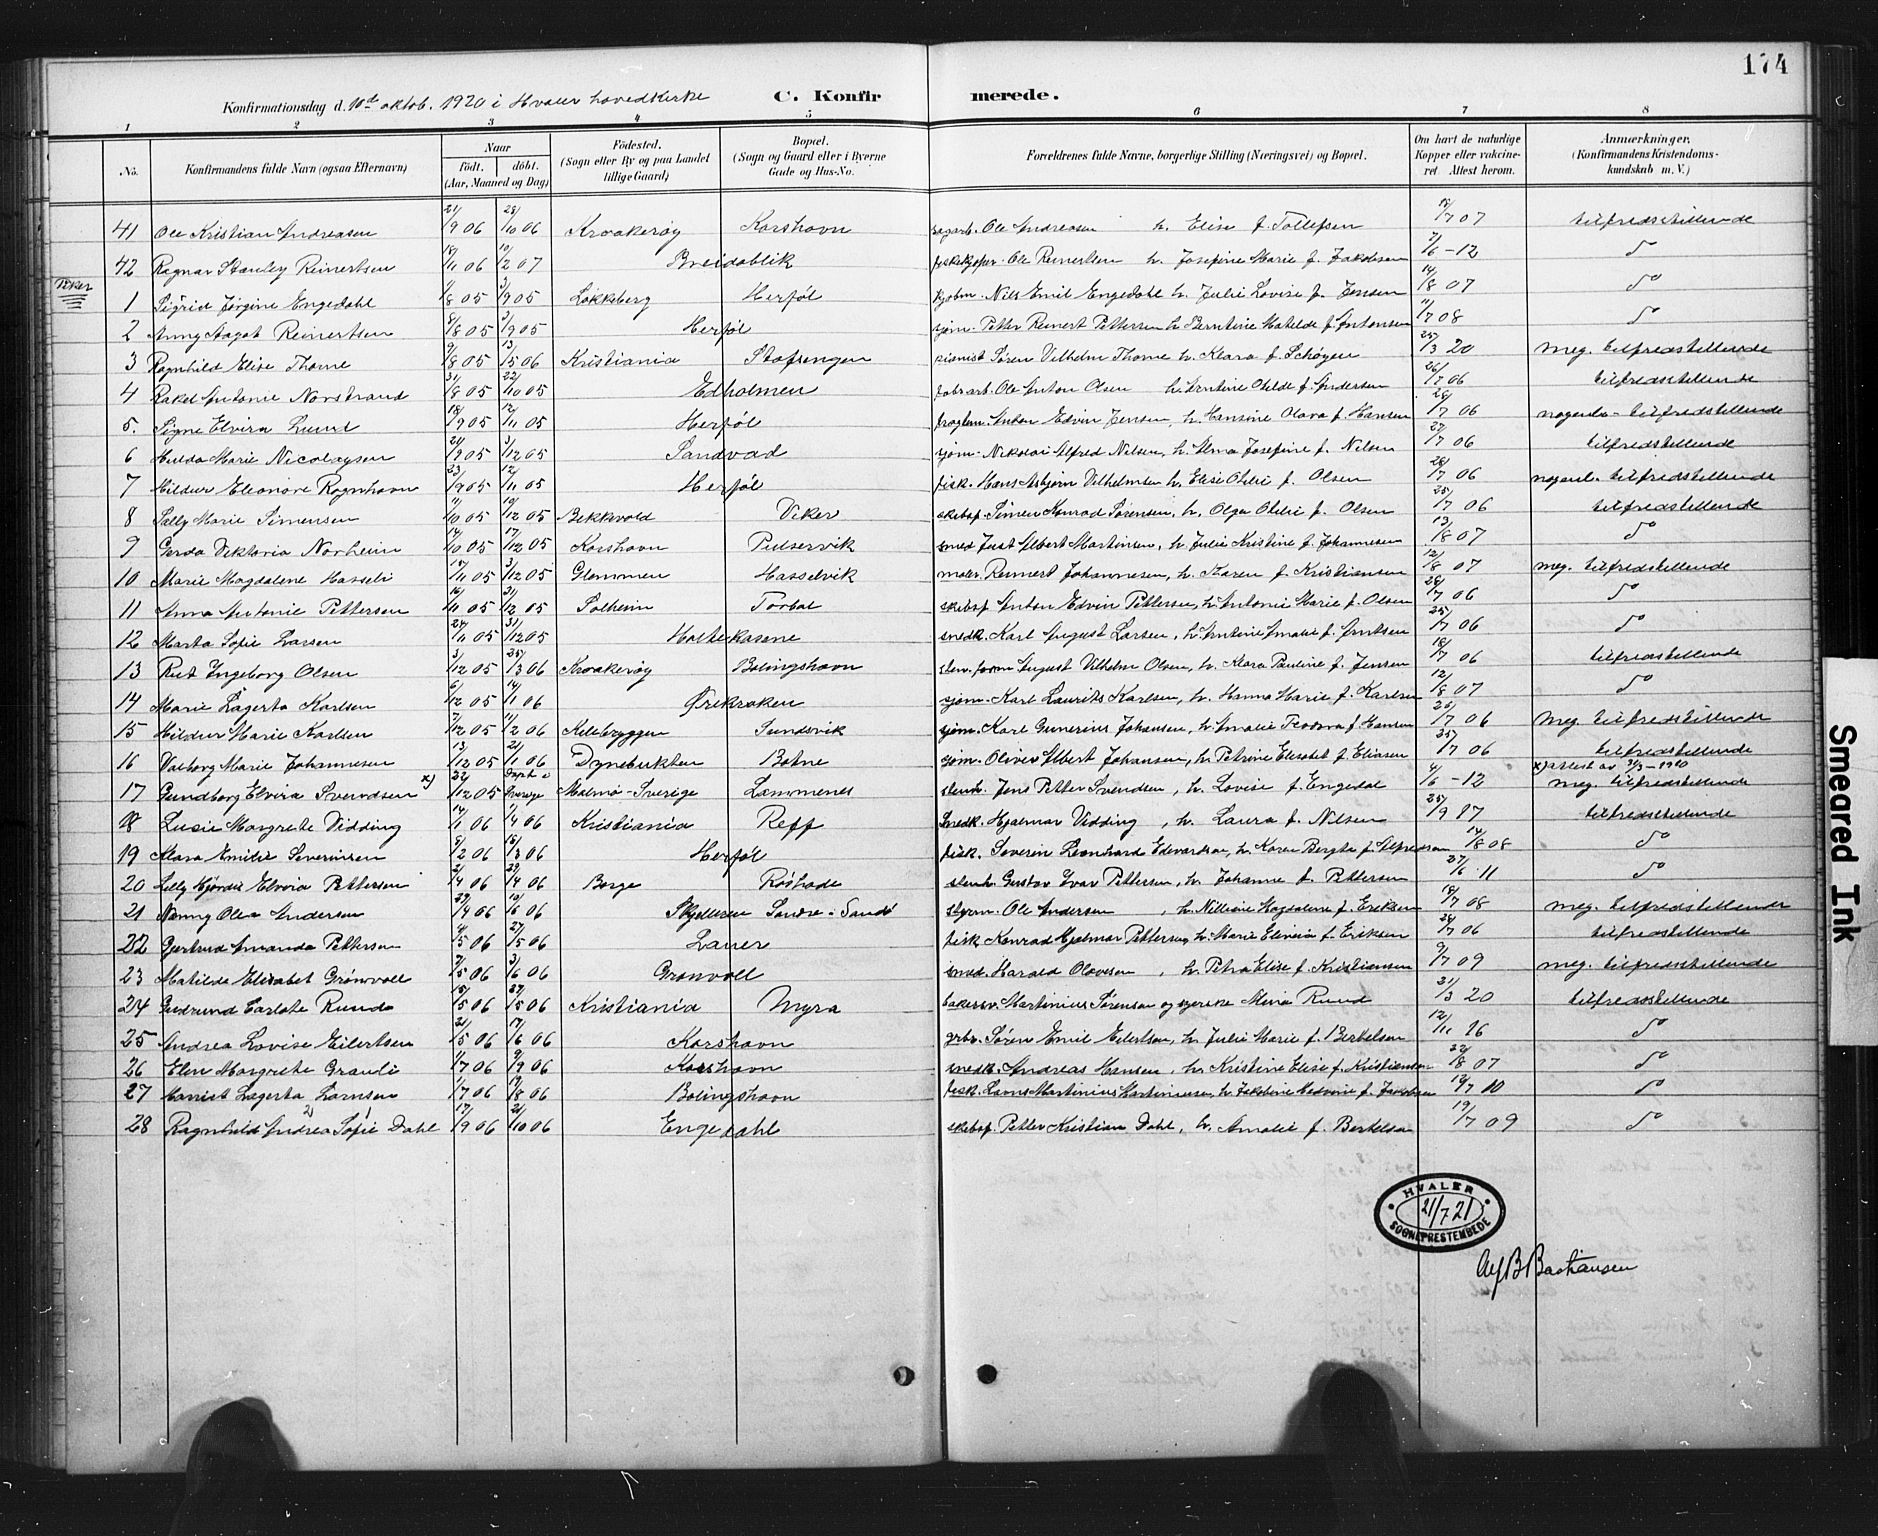 174
Konfirmationsdag d. 10de oktob. 1920 i Hvaler hovedkirke C. Konfirmerede.
1 2 3 4 5 6 7 8
No. Konfirmandens fulde Navn (ogsaa Efternavn) Naar født. døbt. (Aar, Maaned og Dag) Fødested. (Sogn eller By og paa Landet tillige Gaard) Bopæl. (Sogn og Gaard eller i Byerne Gade og Hus-No. Forældrenes fulde Navne, borgerlige Stilling (Næringsvei) og Bopæl. Om havt de naturlige Kopper eller vakcineret. Attest herom. Anmærkninger, (Konfirmandens Kristendomskundskab m. V.)
41 Ole Kristian Andreasen 21/9 06 28/10 06 Kraakerøy Korshavn Ole Andreasen h. Elise f. Tollefsen 18/7 07 tilfredsstillende
42 Ragnar Stanley Reinertsen 18/11 06 10/2 07 Breidablik fiskekjøper Ole Reinertsen h. Josefine Marie f. Jakobsen 7/6 -12 do
Piker
1 Sigrid Jørgine Engedahl 1/8 05 3/9 05 Løkkeberg Herføl kjøbm. Nils Emil Engedahl h. Julie Lovise f. Jensen 14/8 07 do
2 Anny Aagot Reinertsen 8/8 05 3/9 05 Herføl sjøm. Petter Reinert Pettersen h. Berntine Matilde f. Antonsen 11/7 08 do
3 Ragnhild Elise Thorne 9/8 05 13/5 06 Kristiania Stafsengen pianist Søren Vilhelm Thorne h. Klara f. Schøyen 25/3 20 meg. tilfredsstillende
4 Rakel Antonie Norstrand 31/8 05 22/10 05 Edholmen fabr.arb. Ole Anton Olsen h. Arntine Otilde f. Andersen 26/7 06 tilfredsstillende
5. Signe Elvira Lund 18/9 05 12/11 05 Herføl Anton Edvin Jensen, h. Hansine Olava f. Hansen 26/7 06 nogenl. tilfredsstillende
6 Hulda Marie Nicolaysen 21/9 05 3/12 05 Sandvad sjøm. Nikolai Alfred Nilsen, h. Alma Josefine f. Nilsen 27/7 06 tilfredsstillende
7 Hildur Eleonore Rognhavn 23/9 05 12/11 05 Herføl fisk. Hans Asbjørn Vilhelmsen h. Elise Otilie f. Olsen 26/7 06 nogenl. tilfredsstillende
8 Sally Marie Simensen 11/10 05 10/12 05 Bekkevold Viker skibsf. Simen Konrad Sørensen, h. Olga Otilie f. Olsen 25/7 06 tilfredsstillende
9 Gerda Viktoria Norheim 14/10 05 17/12 05 Korshavn Pulservik smed Just Albert Martinsen, h. Julie Kristine f. Johannesen 13/8 07 do
10 Marie Magdalene Hasseli 15/11 05 3/12 05 Glommen Hasselvik maler. Reinert Johannesen, h. Karen f. Kristiansen 12/8 07 meg. tilfredsstillende
11 Anna Antonie Pettersen 16/11 05 31/12 05 Solheim Torbal skibsf. Anton Edvin Pettersen, h. Antonie Marie f. Olsen 26/7 06 do
12 Marta Sofie Larsen 24/11 05 31/12 05 Holtekasene snedk. Karl August Larsen, h. Arntine Amalie f. Arntsen 25/7 06 do
13 Rut Ingeborg Olsen 3/12 05 25/3 06 Kraakerøy Bølingshavn sten. form August Vilhelm Olsen, h. Klara Pauline f. Jensen 18/7 06 tilfredsstillende
14 Marie Lagerta Karlsen 6/12 05 14/1 06 Ørekroken sjøm. Karl Laurits Karlsen, h. Hanna Marie f. Karlsen 12/8 07 do
15 Hildur Marie Karlsen 7/12 05 11/2 06 Kilebryggen Sundsvik sjøm. Karl Gunerius Johansen, h. Amalie Teodora f. Hansen 25/7 06 meg. tilfredsstillende
16 Valborg Marie Johannesen 13/12 05 21/1 06 Dynebukten Botne sjøm. Oliver Albert Johansen, h. Petrine Elisabet f. Eliasen 25/7 06 tilfredsstillende
x) attest av 3/3 - 1920
17 Gundborg Elvira Svendsen x) 22/12 05 Døpt i Sverige Malmø - Sverige Lammenes stenh. Jens Petter Svendsen, h. Lovise f. Engedal 4/6 -12 meg. tilfredsstillende
18 Lucie Margrete Vidding 14/1 06 1/4 06 Kristiania Reff Snedk. Hjalmar Vidding, h. Laura f. Nilsen 25/9 17 tilfredsstillende
19 Klara Emilie Severinsen 8/2 06 18/3 06 Herføl fisk. Severin Leonhard Edvardsen, h. Karen Bergta f. Alfredsen 14/8 08 do
20 Lilly Hjørdis Elvira Pettersen 2/4 06 29/4 06 Borge Røshade stenh. Gustav Ivar Pettersen, h. Johanne f. Pettersen 27/6 11 do
21 Nanny Olea Andersen 29/4 06 10/6 06 Skjelleren Søndre - Sandø styrm. Ole Andersen, h. Nilliane Magdalene f. Eriksen 18/7 08 meg. tilfredsstillende
22 Gjertrud Amanda Pettersen 4/5 06 27/5 06 Lauer fisk Konrad Hjalmar Pettersen, h. Marie Elineia f. Eriksen 26/7 06 tilfredsstillende
23 Matilde Elisabet Grønvold 7/5 06 3/6 06 Grønvold smed. Harald Olavesen, h. Petra Elise f. Kristiansen 9/7 09 meg. tilfredsstillende
24 Gudrund Carlote Rund 15/5 06 27/5 06 Kristiania Myra bakersv. Martinius Sørensen og syerske Minia Rund 31/3 20 tilfredsstillende
25 Andrea Lovise Eilertsen 21/5 06 17/6 06 Korshavn grbr. Søren Emil Eilertsen, h. Julie Marie f. Bertelsen 12/11 16 do
26 Elen Margrete Grauli 1/7 06 9/9 06 Korshavn snedk. Andreas Hansen, h. Kristine Elise f. Kristiansen 22/8 07 do
27 Harriet Lagerta Larnsen 11/7 06 19/8 06 Bølingshavn fisk. Lauris Martinius Martiniusen, h. Jakobine Hedvine f. Jakobsen 19/7 10 do
28 Ragnhild Andrea Sofie Dahl 17/9 06 21/10 06 Engedahl skibsf. Petter Kristian Dahl, h. Amalie f. Bertelsen 19/7 09 do
HVALER
21/7 21
SOGNEPRESTEMBEDE
Alf B Bastiansen
Smeared Ink